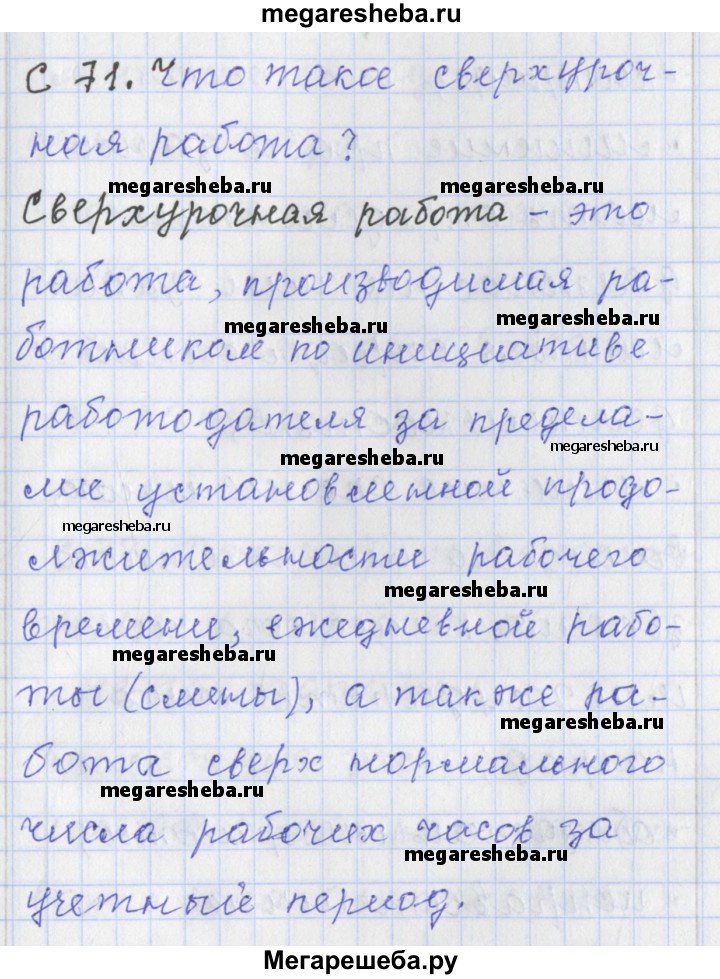 megaresheba.ru
С 71. Что такое сверхуроч-
ная работа?
megaresheba.ru megaresheba.ru
Сверхурочная работа - это
работа, производимая ра-
megaresheba.ru megaresheba.ru
ботником по инициативе
работодателя за предела-
megaresheba.ru megaresheba.ru
ми установленной продо-
megaresheba.ru
лжительности рабочего
megaresheba.ru
времени, ежедневной рабо-
megaresheba.ru
ты (смены), а также ра-
megaresheba.ru
бота сверх нормального
megaresheba.ru
числа рабочих часов за
megaresheba.ru
учетный период.
Мегарешеба.ру